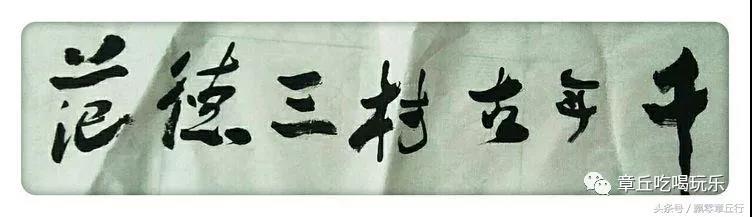 千年古村三德范
章丘吃喝玩乐
头条号 / 飘零章丘行